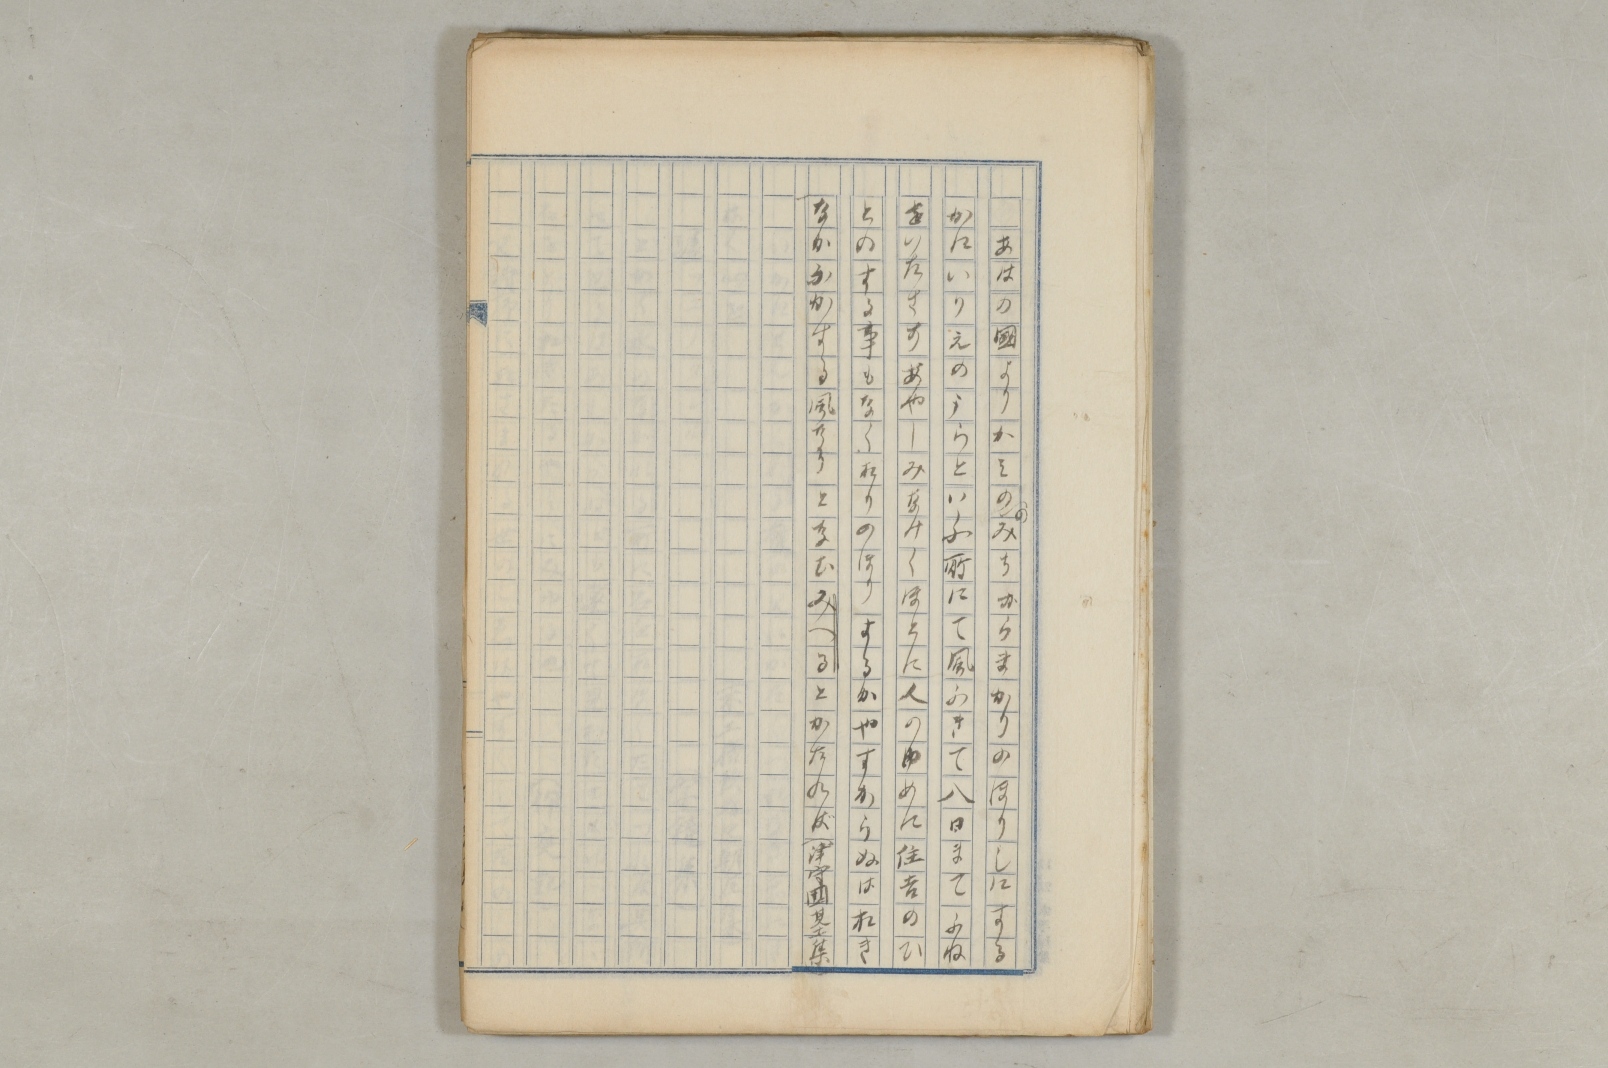 あはの國よりかみのみちからまかりのほりしにする
の
かにいりえのうらといふ所にて風ふきて八日まてふね
をいたさすあやしみなけくほとに人のゆめに住吉のひ
とのする事もなくれりのほりするかやすからぬはおき
なかなかする風なりとなむみつるとかたれば(津守國基集